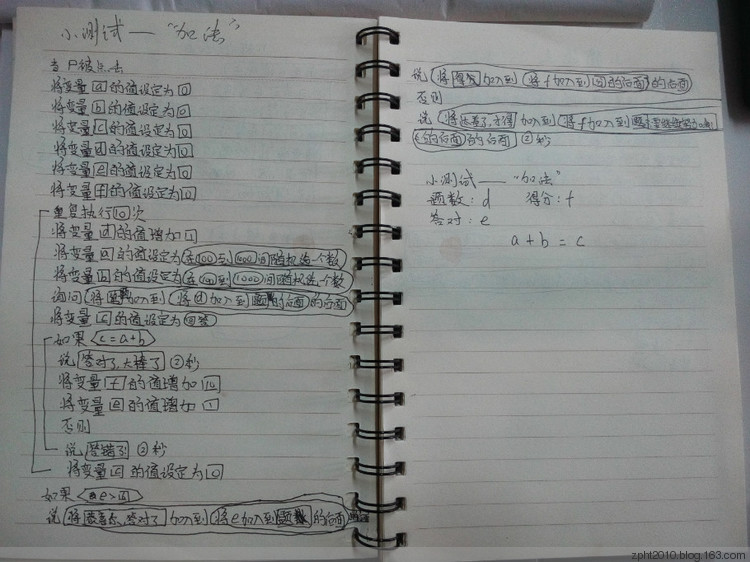 小测试——“加法”
当P被点击
将变量a的值设定为0
将变量b的值设定为0
将变量c的值设定为0
将变量d的值设定为0
将变量e的值设定为0
将变量f的值设定为0
重复执行10次
将变量d的值增加1
将变量a的值设定为在100到1000间随机选一个数
将变量b的值设定为在100到1000间随机选一个数
询问将 加入到将d加入到 的后面的后面
将变量c的值设定为回答
如果c=a+b
说答对了,太棒了2秒
将变量f的值增加10
将变量e的值增加1
否则
说答错了!2秒
将变量c的值设定为0
如果e>
说将 答对了加入到将e加入到题 的后面
说将得分加入到将f加入到 的后面的后面
否则
说将 了,才得加入到将f加入到
的后面的后面2秒
小测试——“加法”
题数:d 得分:f
答对:e
a+b=c
zpht2010.blog.163.com